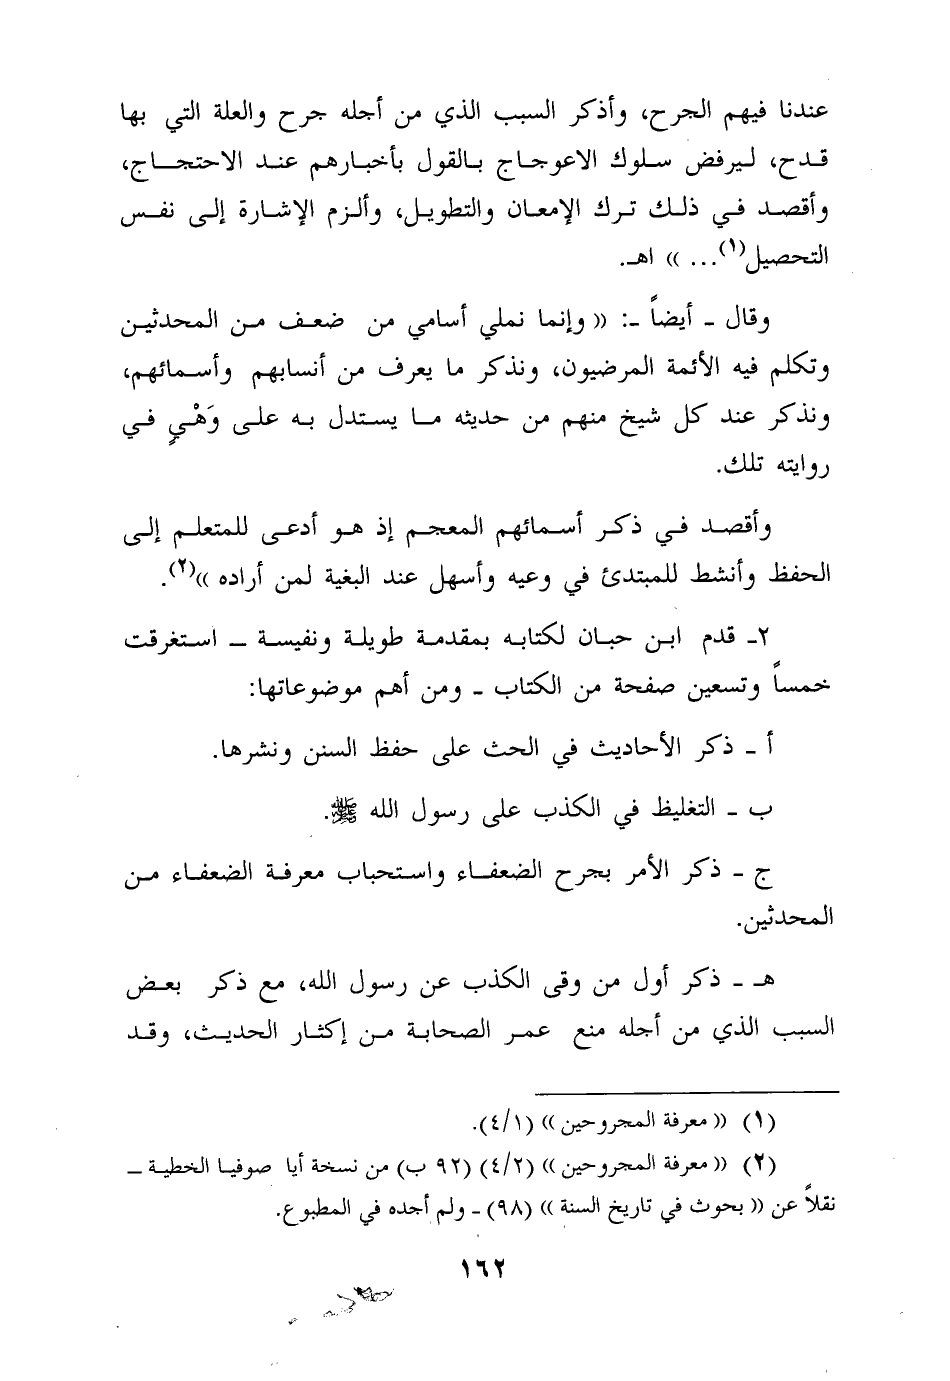 عندنا فيهم الجرح، وأذكر السبب الذي من أجله جرح والعلة التي بها
قدح، ليرفض سلوك الاعوجاج بالقول بأخبارهم عند الاحتجاج،
وأقصد في ذلك ترك الإمعان والتطويل، وألزم الإشارة إلى نفس
التحصيل(١)... )) اهـ.
وقال - أيضاً -: (( وإنما نملي أسامي من ضعف من المحدثين
وتكلم فيه الأئمة المرضيون، ونذكر ما يعرف من أنسابهم وأسمائهم،
ونذكر عند كل شيخ منهم من حديثه ما يستدل به على وَهْيٍ في
روايته تلك.
وأقصد في ذكر أسمائهم المعجم إذ هو أدعى للمتعلم إلى
الحفظ وأنشط للمبتدئ في وعيه وأسهل عند البغية لمن أراده ))(٢).
٢- قدم ابن حبان لكتابه بمقدمة طويلة ونفيسة - استغرقت
خمساً وتسعين صفحة من الكتاب - ومن أهم موضوعاتها:
أ - ذكر الأحاديث في الحث على حفظ السنن ونشرها.
ب - التغليظ في الكذب على رسول الله ﷺ.
ج - ذكر الأمر بجرح الضعفاء واستحباب معرفة الضعفاء من
المحدثين.
هـ - ذكر أول من وقى الكذب عن رسول الله، مع ذكر بعض
السبب الذي من أجله منع عمر الصحابة من إكثار الحديث، وقد
(١) (( معرفة المجروحين )) (٤/١).
(٢) (( معرفة المجروحين )) (٤/٢) (٩٢ ب) من نسخة أيا صوفيا الخطية -
نقلاً عن (( بحوث في تاريخ السنة )) (٩٨) - ولم أجده في المطبوع.
١٦٢